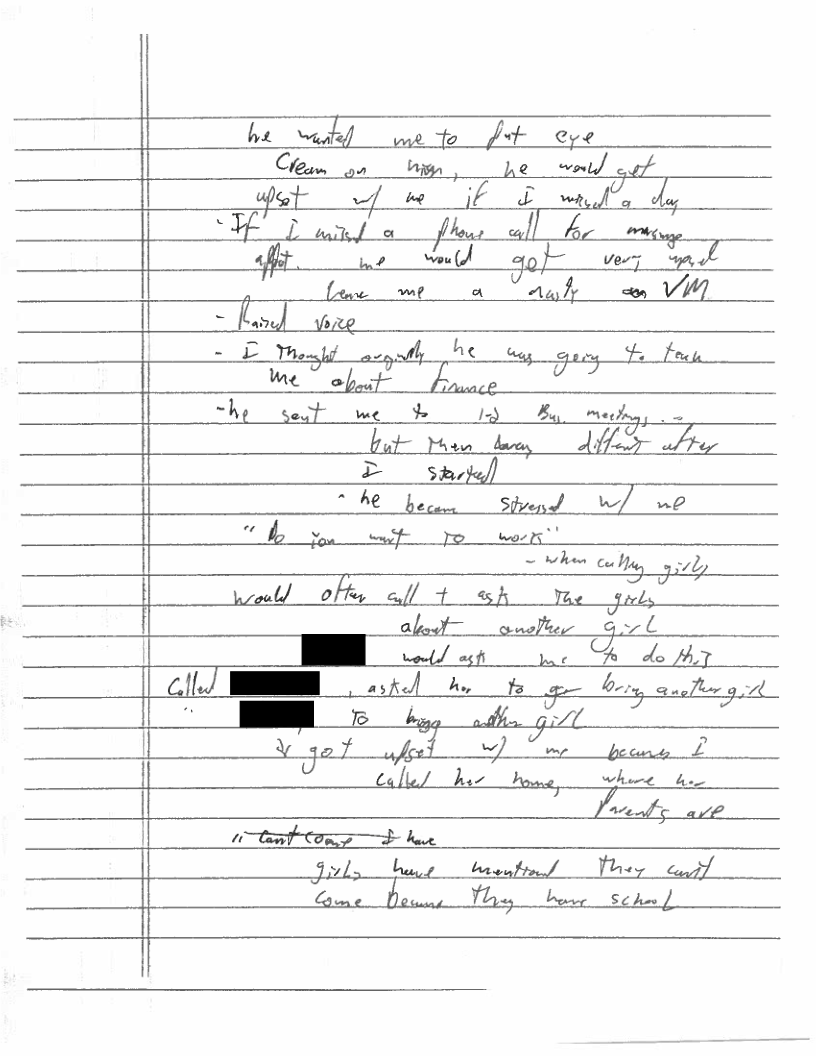 he wanted me to put eye
Cream on him, he would get
upset w/ me if I missed a day
- If I missed a phone call for massage
appt. he would get very
leave me a nasty VM
- Raised voice
- I Thought orginally he was going to teach
me about finance
- he sent me to 1-2 Bus. meetings. -
but then became diffent after
I started
- he became stressed w/ me
"Do You want TO work"
- when calling girls
would often call + ask The girls
about another girl
would ask me to do this
Called , asked her to bring another girl
" , TO bring another girl
got upset w/ me because I
called her home, where her
Parents are
" Can't Come I have
girls have mentioned they can't
come because They have school